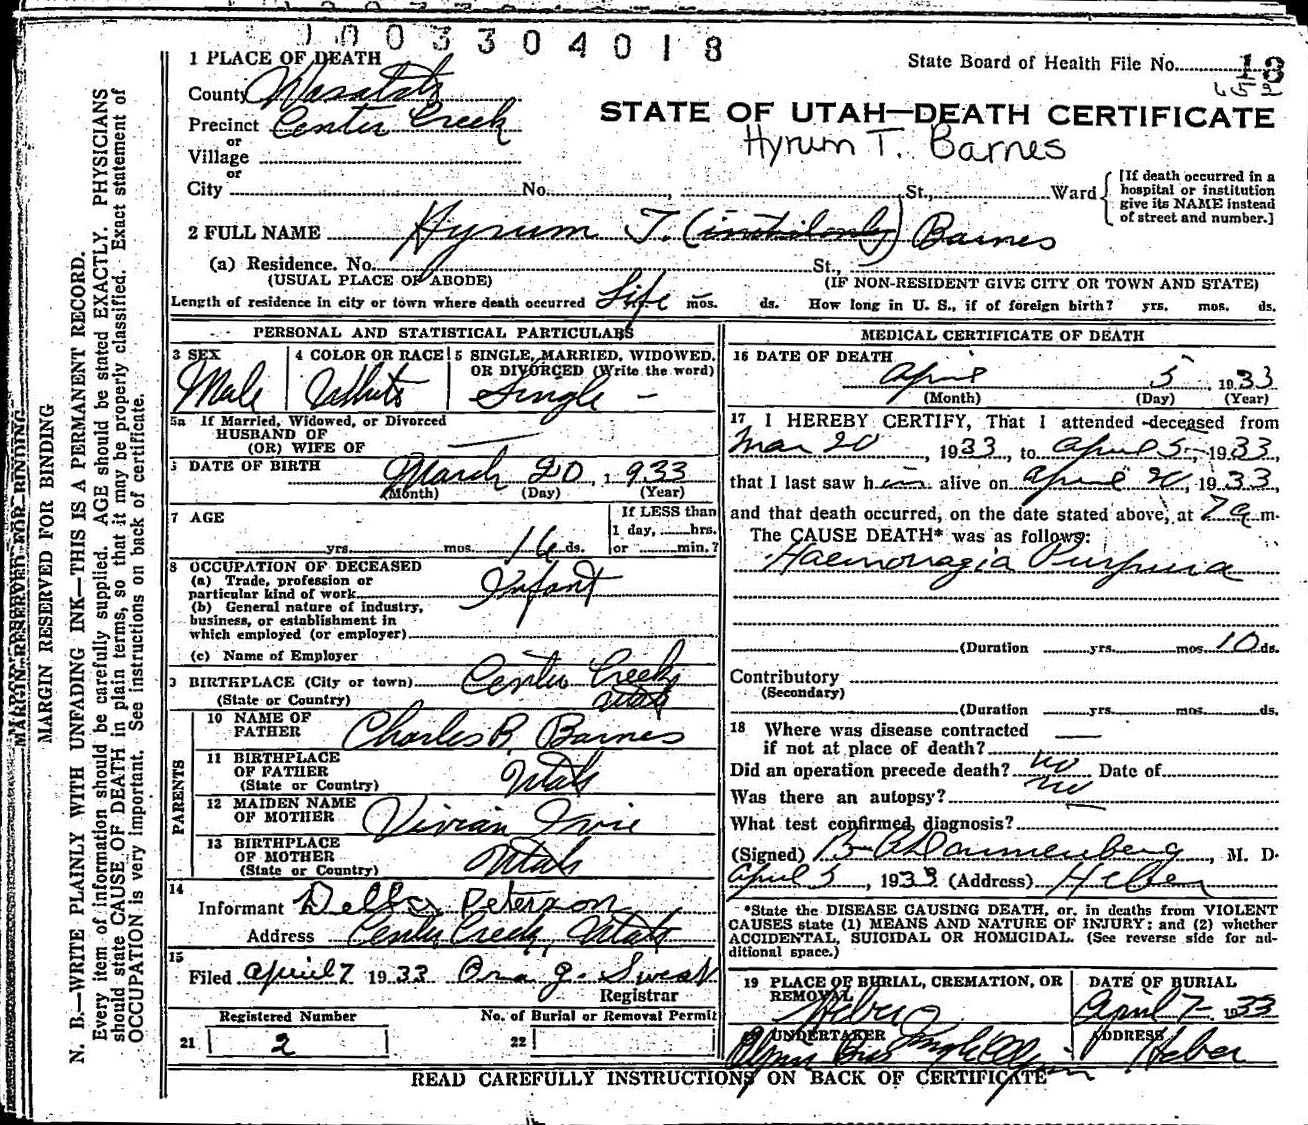 1003304018
1 PLACE OF DEATH
State Board of Health File No. 13
County Wasatch
Precinct Center Creek
or
Village
or
City No. , St., Ward
[If death occurred in a hospital or institution give its NAME instead of street and number.]
STATE OF UTAH—DEATH CERTIFICATE
Hyrum T. Barnes
2 FULL NAME Hyrum T. (initial only) Barnes
(a) Residence. No. St.,
(USUAL PLACE OF ABODE) (IF NON-RESIDENT GIVE CITY OR TOWN AND STATE)
Length of residence in city or town where death occurred Life mos. ds. How long in U. S., if of foreign birth? yrs. mos. ds.
PERSONAL AND STATISTICAL PARTICULARS
3 SEX
Male
4 COLOR OR RACE
White
5 SINGLE, MARRIED, WIDOWED,
OR DIVORCED (Write the word)
Single
5a If Married, Widowed, or Divorced
HUSBAND OF
(OR) WIFE OF
DATE OF BIRTH March 20, 1933
(Month) (Day) (Year)
7 AGE
yrs. mos. 16 ds.
If LESS than
1 day, hrs.
or min.?
8 OCCUPATION OF DECEASED
(a) Trade, profession or
particular kind of work Infant
(b) General nature of industry,
business, or establishment in
which employed (or employer)
(c) Name of Employer
9 BIRTHPLACE (City or town) Center Creek
(State or Country) Utah
PARENTS
10 NAME OF
FATHER Charles R. Barnes
11 BIRTHPLACE
OF FATHER Utah
(State or Country)
12 MAIDEN NAME
OF MOTHER Vivian Ivie
13 BIRTHPLACE
OF MOTHER Utah
(State or Country)
14
Informant Della Peterson
Address Center Creek, Utah
15
Filed April 7 1933 Ora J. Sweat
Registrar
Registered Number No. of Burial or Removal Permit
21 2 22
MEDICAL CERTIFICATE OF DEATH
16 DATE OF DEATH
April 5, 1933
(Month) (Day) (Year)
17 I HEREBY CERTIFY, That I attended deceased from
Mar 20, 1933, to April 5, 1933,
that I last saw him alive on April 20, 1933,
and that death occurred, on the date stated above, at 7 a.m.
The CAUSE DEATH* was as follows:
Haemorragia Purpura
(Duration yrs. mos. 10 ds.
Contributory
(Secondary)
(Duration yrs. mos. ds.
18 Where was disease contracted
if not at place of death?
Did an operation precede death? no Date of
Was there an autopsy? no
What test confirmed diagnosis?
(Signed) Dannenberg, M. D.
April 5, 1933 (Address) Heber
*State the DISEASE CAUSING DEATH, or, in deaths from VIOLENT
CAUSES state (1) MEANS AND NATURE OF INJURY; and (2) whether
ACCIDENTAL, SUICIDAL OR HOMICIDAL. (See reverse side for ad-
ditional space.)
19 PLACE OF BURIAL, CREMATION, OR
REMOVAL
Heber
DATE OF BURIAL
April 7 1933
UNDERTAKER
ADDRESS
Heber
READ CAREFULLY INSTRUCTIONS ON BACK OF CERTIFICATE
MARGIN RESERVED FOR BINDING
MARGIN RESERVED FOR BINDING
N. B.—WRITE PLAINLY WITH UNFADING INK—THIS IS A PERMANENT RECORD.
Every item of information should be carefully supplied. AGE should be stated EXACTLY. PHYSICIANS
should state CAUSE OF DEATH in plain terms, so that it may be properly classified. Exact statement of
OCCUPATION is very important. See instructions on back of certificate.